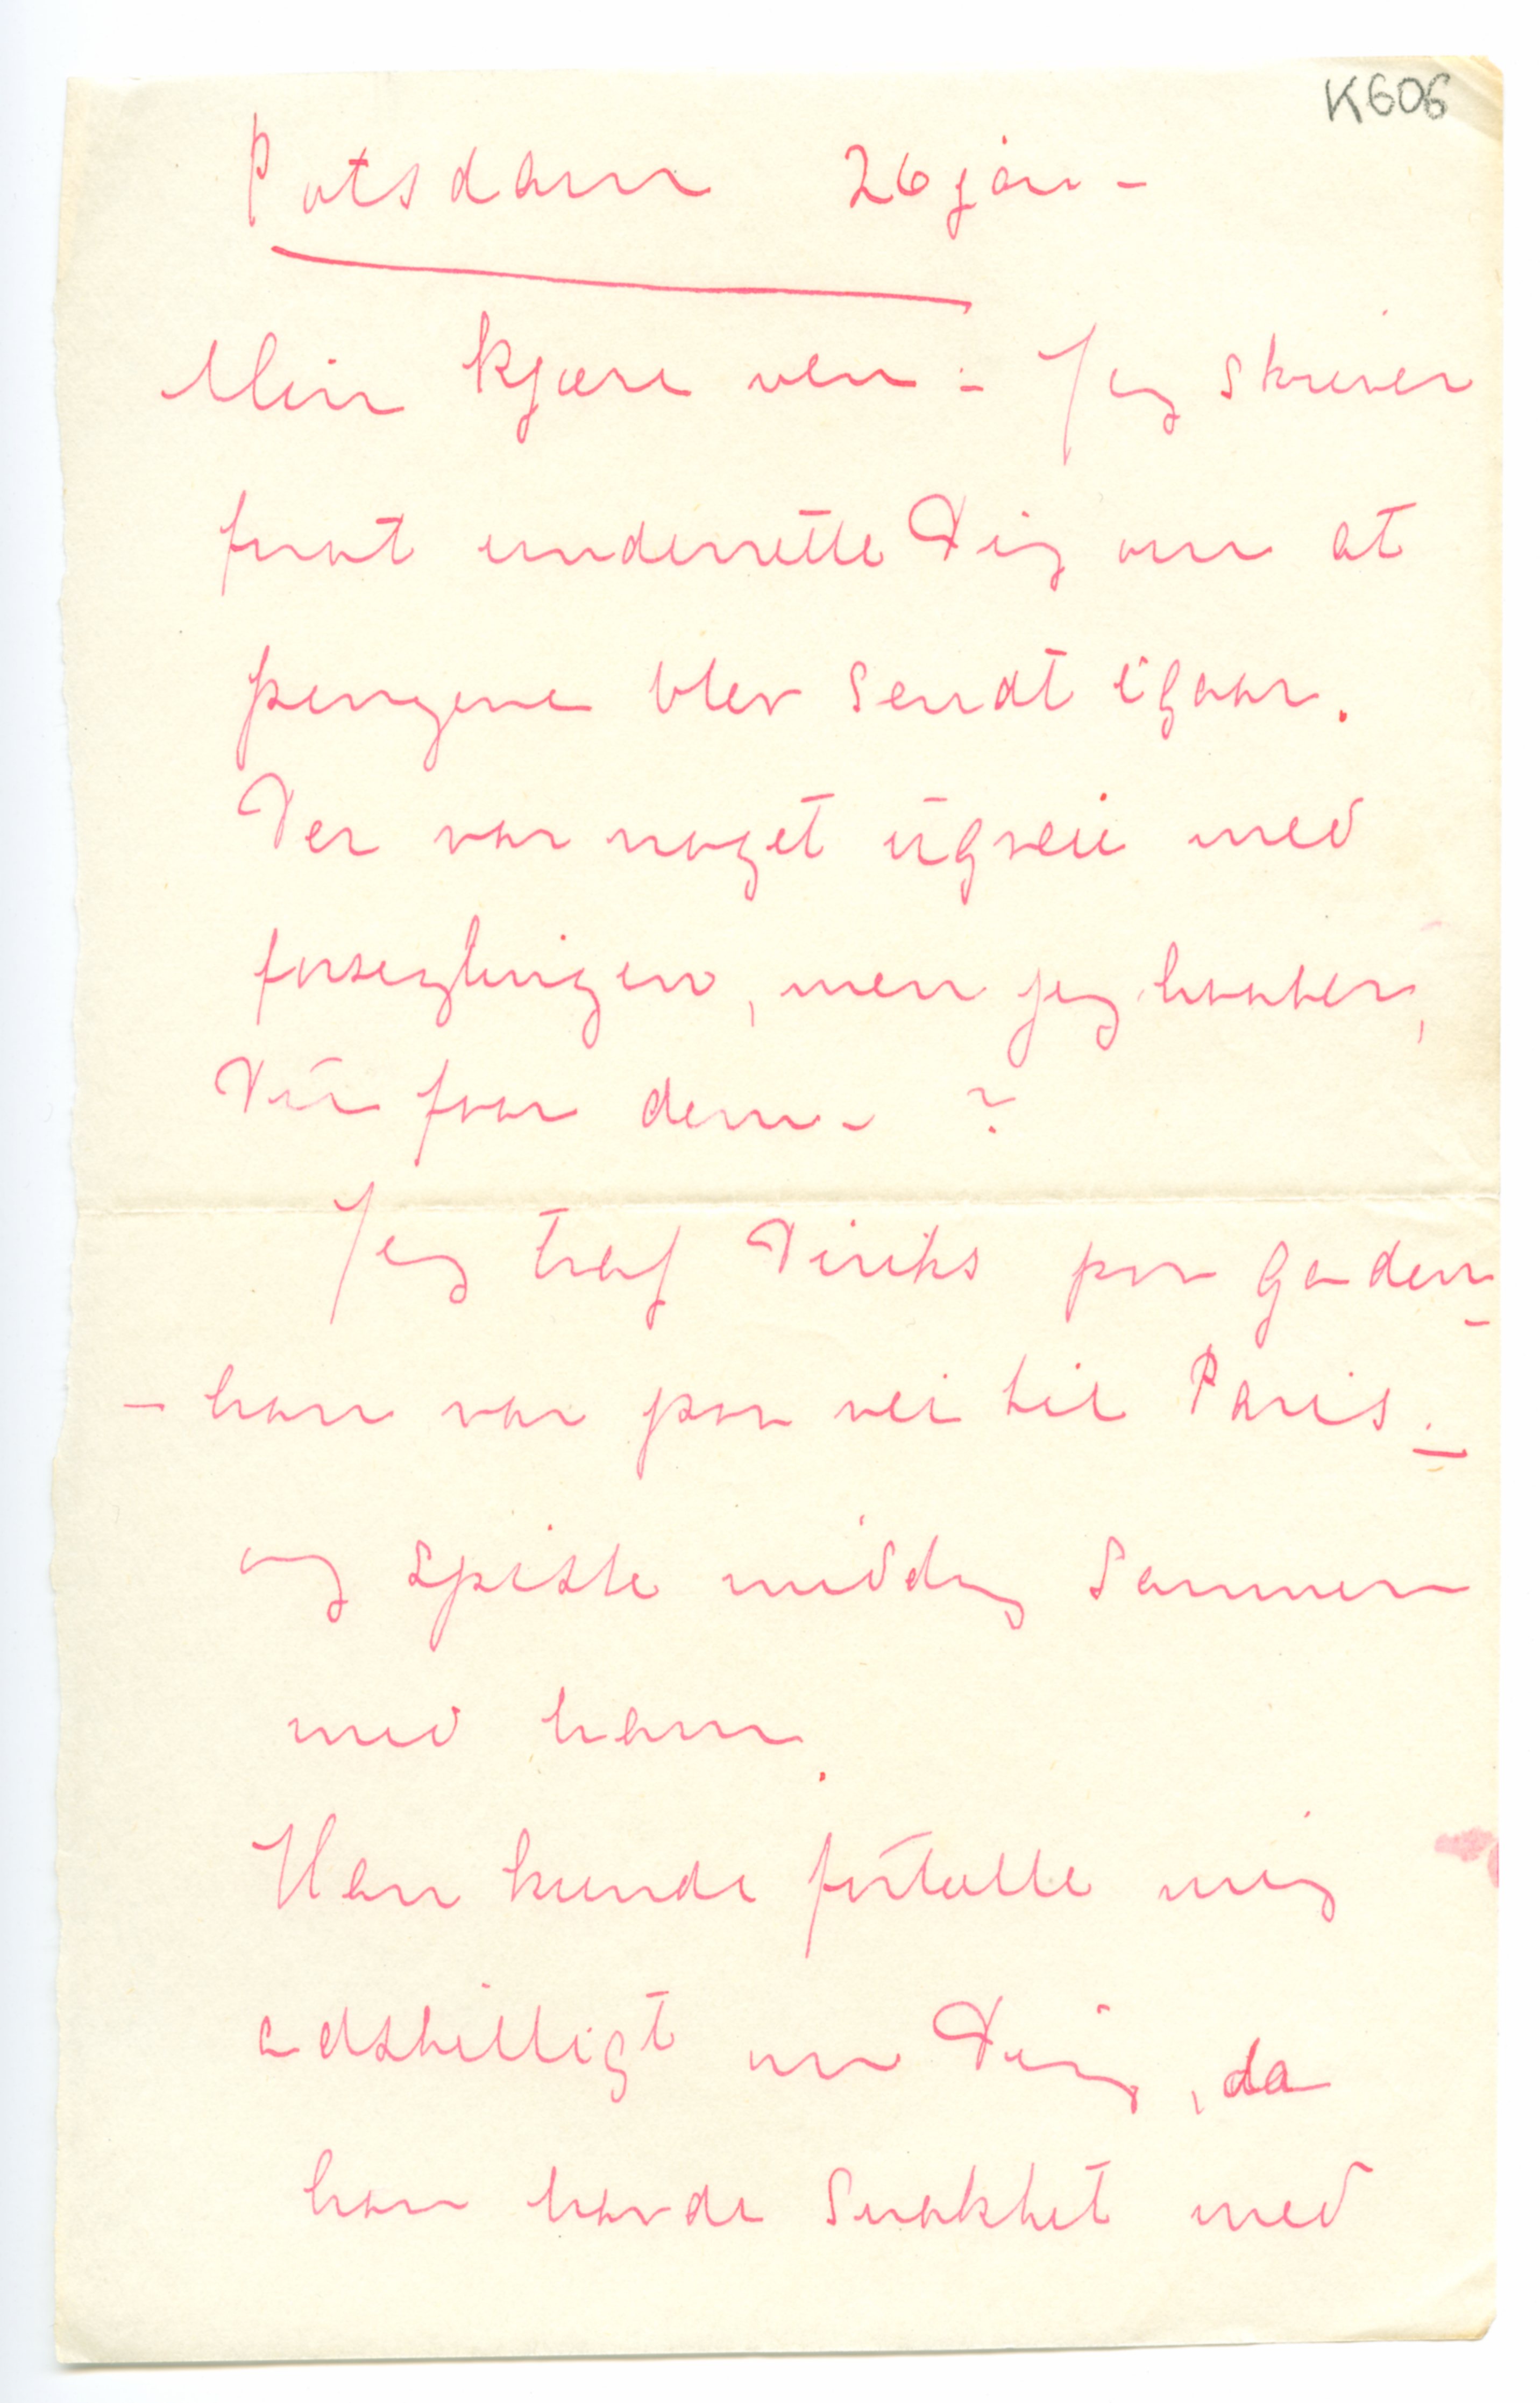 K606
Potsdam 26 jan –
Min kjære ven – Jeg skriver
for at underrette Dig om at
pengene blev sendt igaar.
Der var noget igveie med
forseglingen, men jeg haaber,
Du faar dem – ?
Jeg traf Diriks paa gaden –
– han var paa vei til Paris. –
og spiste middag sammen
med ham.
Han kunde fortælle mig
adskilligt om Dig, da
han havde snakket med